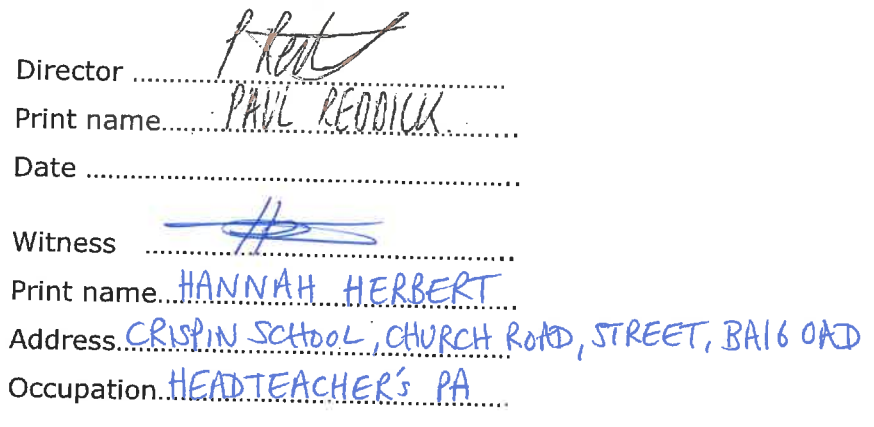 Director
Print name PAUL REDDICK
Date
Witness
Print name HANNAH HERBERT
Address CRISPIN SCHOOL, CHURCH ROAD, STREET, BA16 0AD
Occupation HEADTEACHER's PA